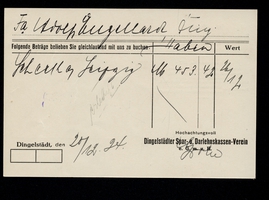 Fa. Adolf Engelhard Jng.
Folgende Beträge belieben Sie gleichlautend mit uns zu buchen. Haben Wert
Scheck a/ Leipzig M 453.42 24/12
Hochachtungsvoll
Dingelstädt, den 20/12.24 Dingelstädter Spar- u. Darlehnskassen-Verein